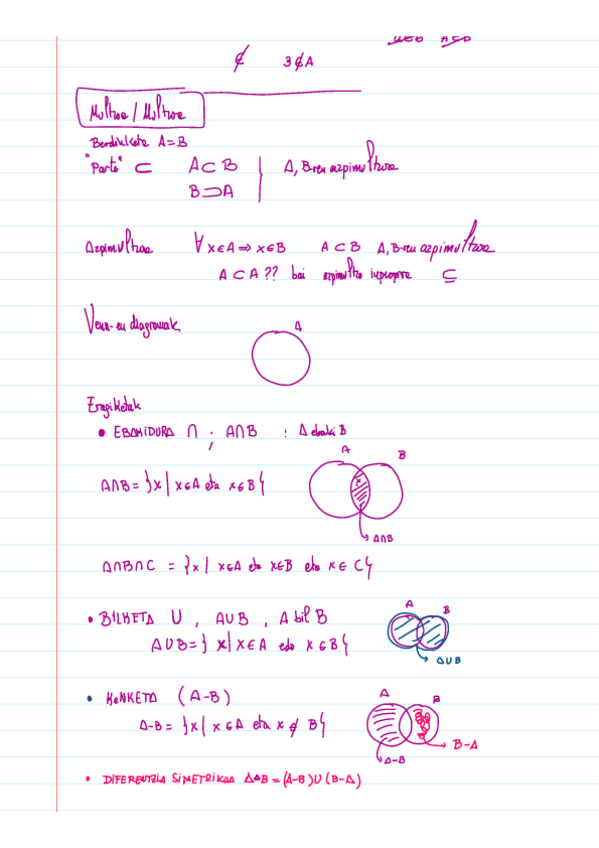 ∉ 3∉A
Multzoa / Multzoa
Berdinketa A=B
"Parte" ⊂ A⊂B
B⊃A
A, B-ren azpimultzoa
Azpimultzoa ∀x∈A ⇒ x∈B A⊂B A, B-ren azpimultzoa
A⊂A ?? bai azpimultzo inpropioa ⊆
Venn-en diagramak
A
Eragiketak
• EBAKIDURA ∩ ; A∩B : A ebaki B
A B
A∩B = }x | x∈A eta x∈B{
A∩B
A∩B∩C = {x | x∈A eta x∈B eta x∈C{
• BILKETA U , AUB , A bil B
A B
AUB = } x | x∈A edo x∈B{
AUB
• KENKETA (A-B)
A B
A-B = }x | x∈A eta x∉B{
B-A
A-B
• DIFERENTZIA SIMETRIKOA A∆B = (A-B)U(B-A)